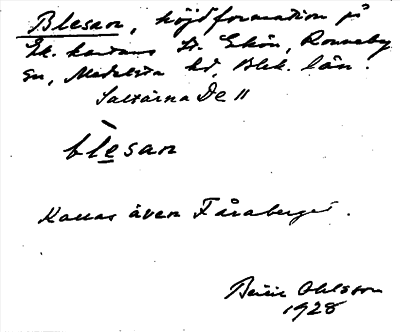 Blesan, höjdformation på
Ek. kartans St. Ekön, Ronneby
sn, Medelsta hd, Blek. län.
Saxärna De 11
blesan
Kallas även Fåraberget.
Ohlsson
1928